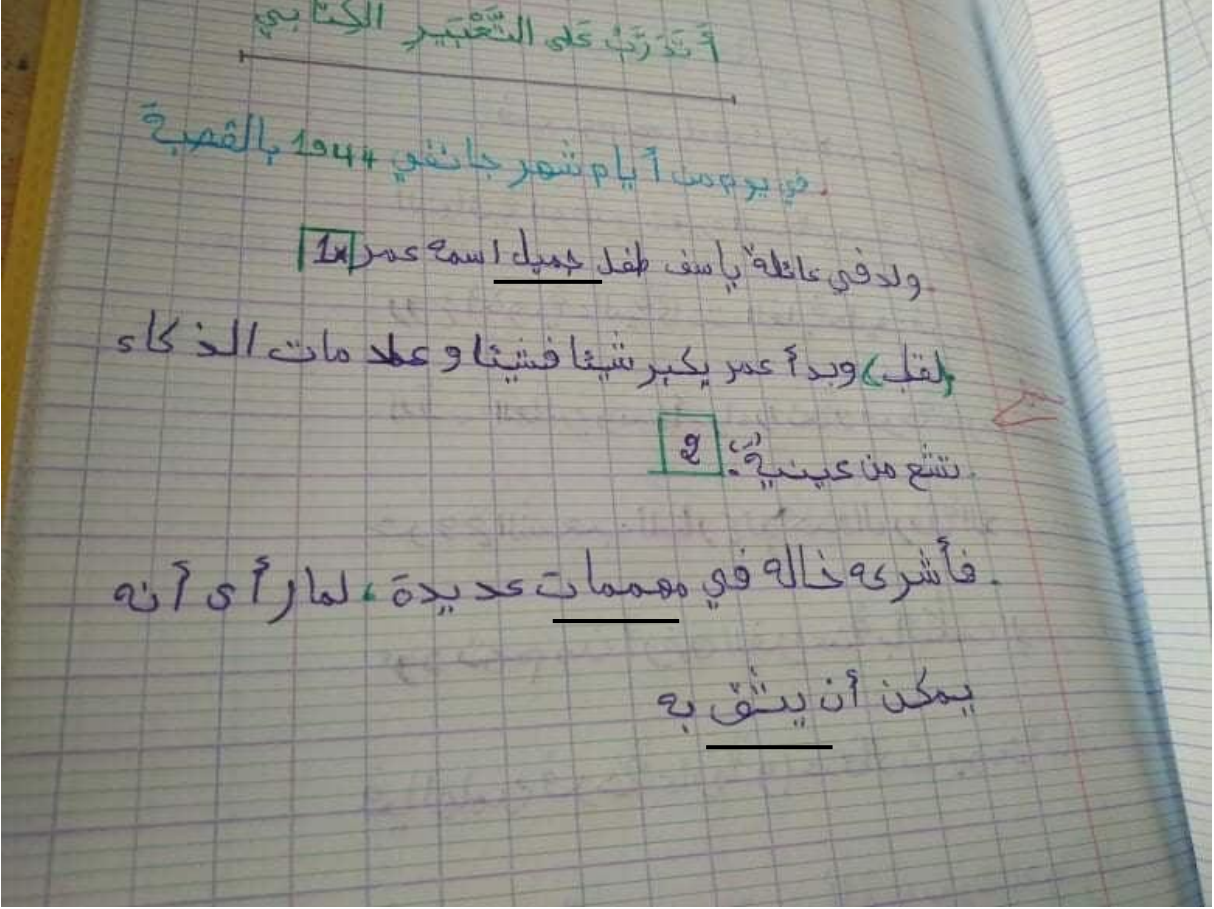 أَتَدَرَّبُ عَلَى التَّعْبِيرِ الكِتَابِي
. في يوم من أيام شهر جانفي 1944 بالقصبة
. ولد في عائلة ياسف طفل جميل اسمه عمر 1x
(لقب) وبدأ عمر يكبر شيئا فشيئا وعلامات الذكاء
. تشع من عينية: 2
. فأشركه خاله في مهممات عديدة، لما رأى أنه
يمكن أن يثق به